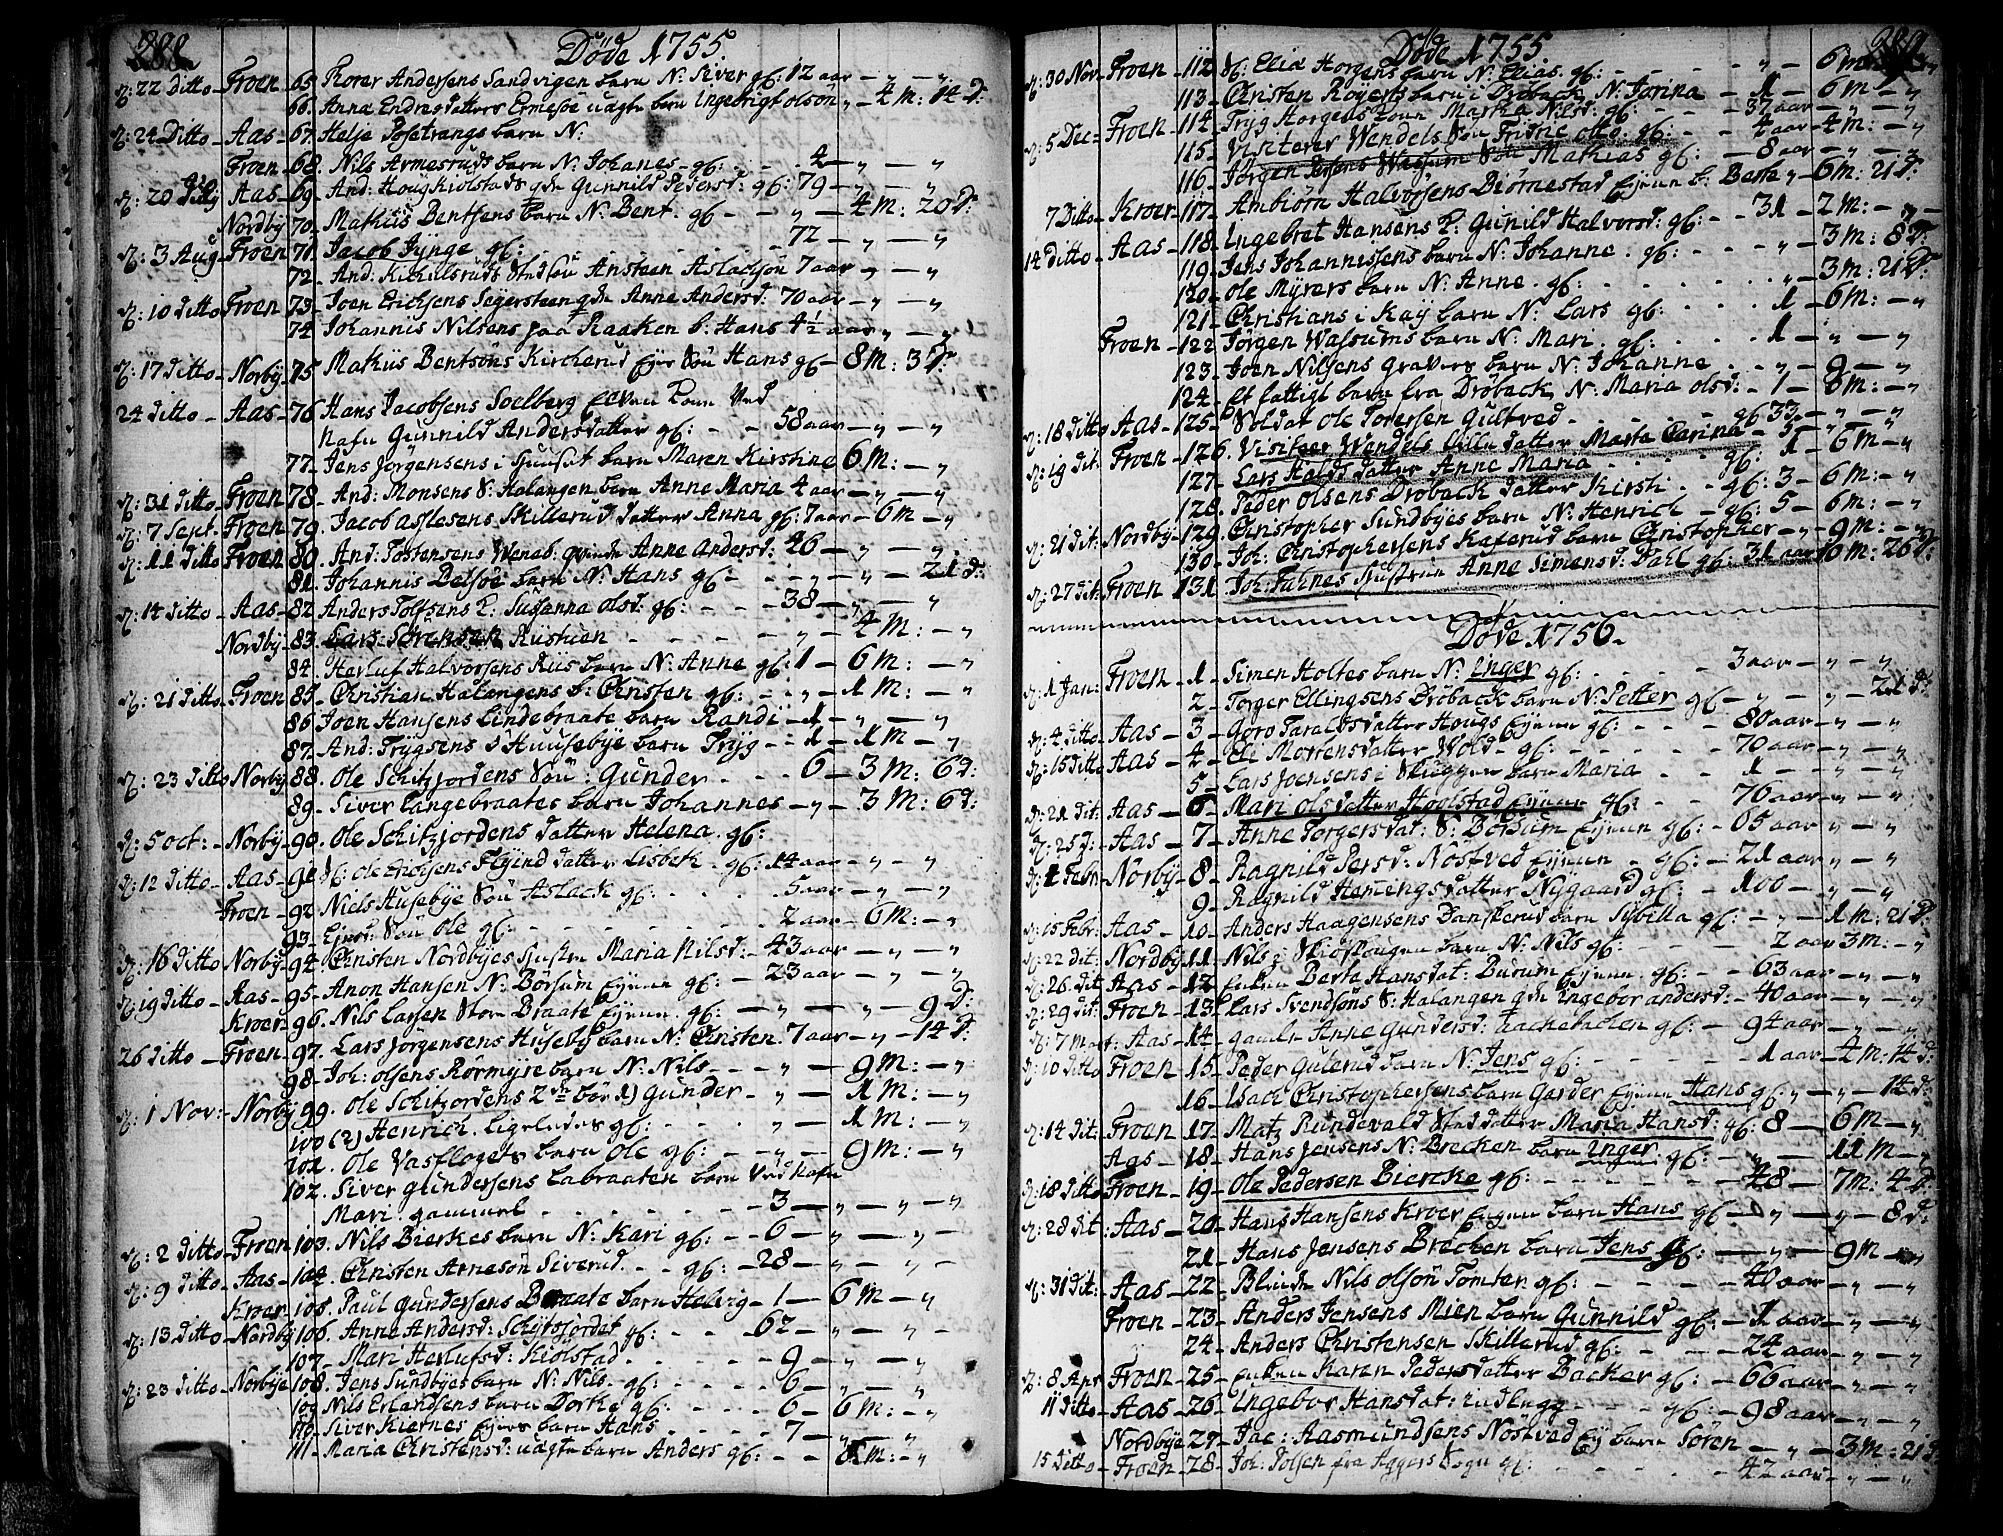 288
Døde 1755
d: 22 ditto Froen 65 Thorer Andersens Sandvigen barn N: Siver gl: 12 aar - „ - „
66. Anna Endresdatters uægte barn Ingebrigt olsön „ - 4 M: 14 D:
d: 24 Ditto - Aas - 67. Helje Posetrangs barn N:
Froen 68. Nils Armesruds barn N: Johanes gl: - - 4 - „ - „
d: 20 Aas - 69. And: Houg Kiolstads qde Gunnild Pedersd: gl: 79 - „ - „
Nordby 70. Mathiis Bentsens barn N: Bent. gl - - „ - 4 M: 20 D:
d: 3 Aug Froen 71. Jacob Jynge gl: - - 72 - „ - „
72. And: Stedsön Ansteen Aslachsön 7 aar - „ - „
d: 10 ditto Froen 73. Joen Erichsens Segersteen qde Anne Andersd: 70 aar - „ - „
74. Johannis Nilsens paa Raaken b: Hans 4½ aar „ - „
d: 17 ditto Norby 75 Mathiis Bentsöns Kircherud Ejer Sön Hans gl - 8 M: 3 D:
24 ditto - Aas - 76 Hans Jacobsens Soelberg Kone Ved
Nafn Gunnild Andersdatter gl: - - 58 aar - „ - „
77. Jens Jörgensens i barn Maren Kirstine 6 M: - „
d: 31 ditto Froen 78. And: Monsens S: Halangen barn Anne Maria 4 aar - „ - „
d: 7 Sept. Froen 79. Jacob Aslesens Skillerud datter Anna gl: 7 aar - 6 m - „
d: 11 ditto Froen 80. And: Tostensens Wenab. qvinde Anne Andersd: 46 - „ - „
81. Johannis Delsöe barn N: Hans gl - - „ - „ - 21 d:
d: 14 ditto - Aas - 82 Anders Tolfsens k: Susanna olsd: gl: - - 38 - „ - „
Nordby 83. Lars Sörensen - - „ - 4 M: - „
84. Herluf Halvorsens Riis barn N: Anne gl: 1 - 6 M: - „
d: 21 ditto Froen 85. Christian Halangens b: Christen gl: - „ - 1 M: - „
86 Joen Hansens Lindebraate barn Randi - 1 - „ - „
87. And: Trÿgsens S Huusebÿe barn Trÿg - - 1 - 1 M - „
d: 23 ditto Norby 88. Ole Schitfjordens Sön: Gunder - - 6 - 3 M: 6 d:
89. Siver Langebraates barn Johannes - „ - 3 M: 6 d:
d: 5 oct: - Norby 90. Ole Schitfjordens datter Helena. gl:
d: 12 ditto - Aas - 91 Flÿind datter Lisbeth gl: 14 aar - „ - „
Froen - 92 Niels Husebÿe Sön Aslack gl: - - 5 aar - „ - „
93. Ejusd: Sön Ole gl: - - 2 aar - 6 M: - „
d: 16 ditto Norby 94. Christen Nordbÿes Hustru Maria Nilsd: - 43 aar - „ - „
d: 19 ditto - Aas - 95. Anon Hansen N: Börsum Ejeren gl: - 23 aar - „ - „
Kroer 96. Nils Larsen Stor Braate Ejeren gl: - „ - „ - 9 D:
26 ditto - Froen 97. Lars Jörgensens Huseby barn N: Christen. 7 aar - „ - 14 D:
98. Joh: olsens Rörmÿre barn N: Nils - - „ - 9 M: - „
d: 1 Nov: - Norby 99. Ole Schitfjordens 2de bör 1) Gunder - „ - 1 M: - „
100 (2) Henrich. ligeledes gl: - - „ - 1 M: - „
101. Ole Vasflogets barn Ole gl: - - „ - 9 M: - „
102. Siver Gundersens Labraaten barn Ved Nafn
Mari. gammel - - 3 - „ - „
d: 2 ditto Froen 103. Nils Bierkes barn N: Kari gl: - 6 - „ - „
d: 9 ditto - Aas - 104. Christen Arnesön Siverud - - gl: - 28 - „ - „
Kroer 105. Paul Gundersens Braate barn Helvig - 1 - 6 M - „
d: 13 ditto - Nordby 106. Anne Andersd: Schitfjordet gl: - - 62 - „ - „
107. Mari Herlufsd: Kiolstad - - 9 - „ - „
d: 23 ditto - Norbye 108. Jens Sundbÿes barn N: Nils. gl: - - 6 - „ - „
109 Nils Erlandsens barn Dorthe gl: - - 6 - 6 M: - „
110. Siver Kiernes Ejers barn Hans - - 7 - „ - „
111. Maria Christensd: uægte barn Anders gl: - - 8 m: - „
289
Døde 1755
d: 30 Nov - Froen - 112 Horgens barn N: Elias. gl: - - „ - 6 m
113. Christen Röyens barn i Dröback N: Jorina - 1 - 6 M - „
d: 5 Dec - Froen - 114 Tryg Horgens Kone Martha Nilsd: gl: - 37 aar - „ - „
115. Visiterer Wendels Sön Otto. gl: - 4 aar - 4 m: - „
116. Jörgen Wassum Sön Mathias gl: - 8 aar - „ - „
7 Ditto - Kroer 117. Ambiörn Halvorsens Biörnestad Ejeren b: Berte „ - 6 m: 21 D:
14 ditto - Aas - 118. Ingebret Hansens k: Gunild Halvorsd: gl: - 31 - 2 M: - „
119. Jens Johannissens barn N: Johanne. gl: - - „ - 3 M: 8 D:
120. Ole Mÿrers barn N: Anne. gl: - - „ - 3 M: 21 D:
121. Christians i Kaÿ barn N: Lars gl: - - 1 - 6 M: - „
Froen - 122. Jörgen Wassums barn N: Mari. gl: - - 1 - „ - „
123. Joen Nilsens Gravers barn N: Johanne - - „ - 9 - „
124. Et fattigt barn fra Dröback, N: Maria olsd: - 1 - 8 M: - „
d: 18 ditto Aas - 125. Soldat Ole Torersen Gultved - - gl 33 - „ - „
d: 19 dit: Froen - 126. Visiteer Wendels lille datter Marte Carina - 5 - „ - „
127. Lars Holdts datter Anne Maria - - gl: 1 - 6 M - „
128. Peder Olsens Dröback datter Kirsti - - gl: 3 - 6 M: - „
d: 21 dit. Nordby - 129. Christopher Sundbÿes barn N: Henrich - gl: 5 - 6 m: - „
130. Joh: Christophersens Kaxerud barn Christopher - „ - 9 m: - „
d: 27 dit: Froen 131. Joh: Hustrue Anne Simensd: Dahl gl: 31 aar 10 m: 26 D:
Døde 1756.
d: 1 Jan: Froen - 1 - Simen Holtes barn N: Inger gl: - - 3 aar - „ - „
2 - Torger Ellingsens Dröback barn N: Petter gl - „ - „ - 21 d:
d: 4 ditto - Aas - 3 - Goro Taraldsdatter Hougs Ejeren gl: - - 80 aar - „ - „
d: 15 ditto - Aas - 4 - Eli Mortensdatter Wold - gl: - - 70 aar - „ - „
5 - Lars Joensens i Skuggen barn Maria - - 1 - „ - „
d: 21 dit: Aas - 6 - Mari Olsdatter Hoolstad Ejeren gl: - - 76 aar - „ - „
d: 25 D: - Aas - 7 - Anne Torgersdat: S: Börsum Ejeren gl: - 65 aar - „ - „
d: 1 Febr - Norby - 8 - Ragnild Persd: Nöstved Ejeren - gl: - 21 aar - „ - „
9 - Ragnild Hemengsdatter Nÿgaard gl: - 100 - „ - „
d: 15 Febr: Aas - 10 - Anders Haagensens Danskerud barn Sybilla gl: - „ - 1 M: 21 D:
d: 22 dit: Nordby 11 - Nils i Skougen barn N: Nils gl: - - 2 aar 3 m: - „
d: 26 dit Aas - 12 Enken Berte Hansdat: Burum Ejeren. gl: - - 63 aar - „ - „
d: 29 dit: Froen - 13 Lars Svendsöns S: Halangen qde Ingebor andersd: - 40 aar - „ - „
d: 7 mart: Aas - 14 - gamle Anne Gundersd: gl: - 94 aar - „ - „
d: 10 ditto Froen - 15 - Peder Guterud barn N: Jens gl: - - 1 aar - 4 m: 14 D:
16 - Isach Christophersens barn Garder Ejeren Hans gl: „ - „ - 14 d:
d: 14 dit: Froen 17 - Matz Rundevald Steddatter Maria Hansd: gl: 8 - 6 M - „
Aas - 18 - Hans Jensens N: Brecken barn Inger gl: - „ - 11 M - „
d: 18 ditto Froen - 19 - Ole Pedersen Biercke gl: - - 48 - 7 m: 4 D:
d: 28 dit: Aas - 20 - Hans Hansens Kroer Ejeren barn Hans gl - „ - „ - 8 d:
21 - Hans Jensens Brecken barn Jens gl: - „ - 9 M - „
d: 31 dit: Aas - 22 - Blinde Nils Olsön Tomter gl: - - 40 aar - „ - „
Froen - 23 - Anders Jensens Mien barn Gunnild gl: - 1 aar - „ - „
24 - Anders Christensen Skillerud gl: - - 24 aar - „ - „
d: 8 Apr Froen - 25 - Enken Karen Pedersdatter Backer gl: - 66 aar - „ - „
11 ditto - Aas - 26 - Ingebor Hansdat: indlagg - - gl: - 98 aar - „ - „
Nordbye 27 - Jac: Aasmundsens Nöstved Ej barn Sören - „ - 3 M: 21 D:
15 ditto - Froen - 28 - Joh: Tolsen fra Aggers Sogn gl: - - 42 aar - „ - „